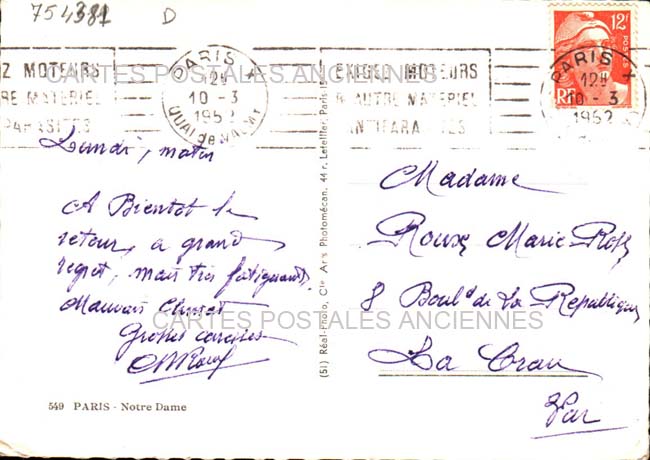 754381 D
EXIGEZ MOTEURS
& AUTRE MATERIEL
ANTIPARASITES
PARIS X
12H
10 - 3
1952
QUAI de VALMY
12F
POSTES
RF
PARIS X
12H
10 - 3
1952
CARTES POSTALES ANCIENNES
Lundi, matin
A Bientot le
retour, a grand
regret, mais très fatiguant,
Mauvais Climat
Grosses caresses
Madame
Roux Marie-Rose
8 Boul^d de La Republique
La Crau
Var
CARTES POSTALES ANCIENNES
(51) Réal-Photo, Cie Arts Photomécan. 44 r. Letellier, Paris-15
549 PARIS - Notre Dame